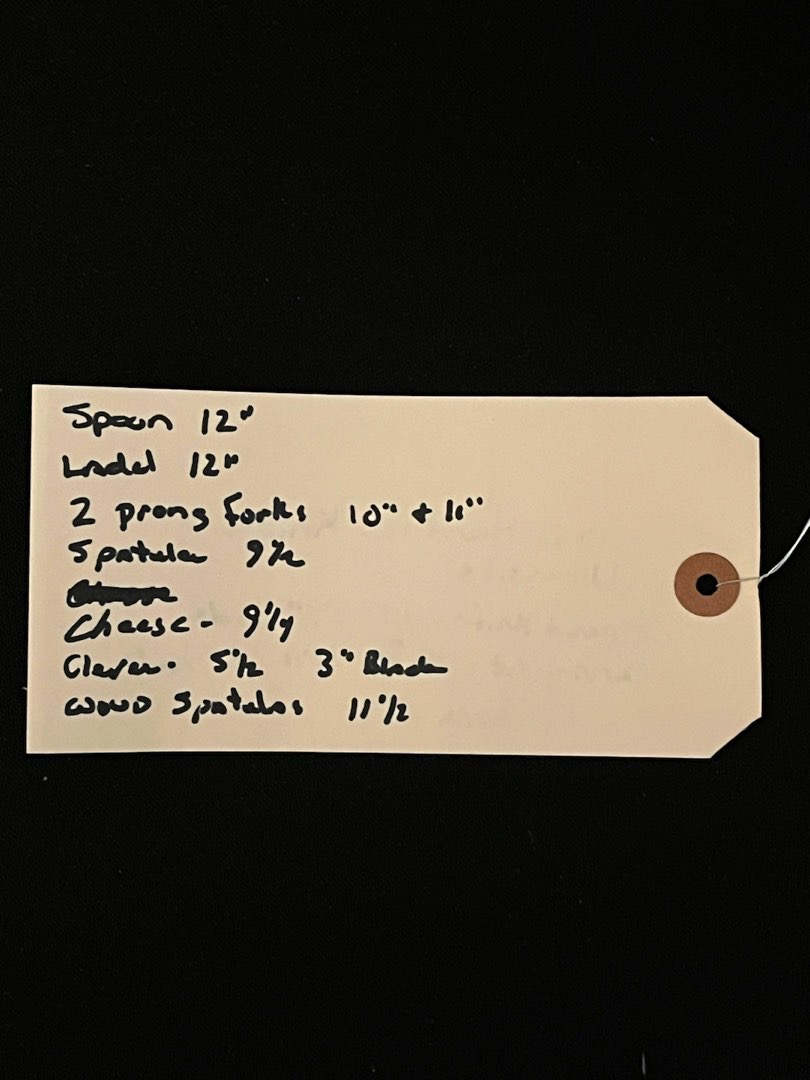 Spoon 12"
Ladel 12"
2 prong Forks 10" + 11"
Spatula 9 1/2
Cheese - 9 1/4
Claver - 5 1/2 3" Blade
Wood Spatulas 11 1/2